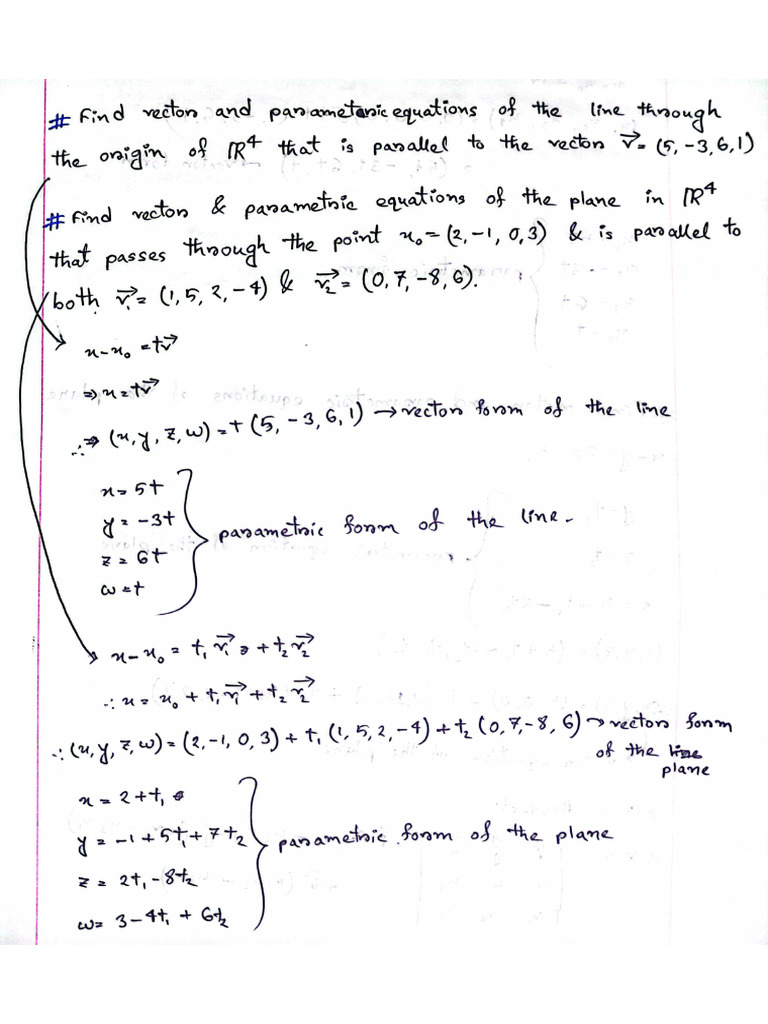 # Find vector and parametric equations of the line through
the origin of ℝ⁴ that is parallel to the vector v⃗ = (5, -3, 6, 1)
# Find vector & parametric equations of the plane in ℝ⁴
that passes through the point x₀ = (2, -1, 0, 3) & is parallel to
both v⃗₁ = (1, 5, 2, -4) & v⃗₂ = (0, 7, -8, 6).
x - x₀ = tv⃗
⇒ x = tv⃗
∴⇒ (x, y, z, w) = t (5, -3, 6, 1) → vector form of the line
x = 5t
y = -3t
z = 6t
w = t
parametric form of the line.
x - x₀ = t₁ v⃗₁ + t₂ v⃗₂
∴ x = x₀ + t₁ v⃗₁ + t₂ v⃗₂
∴ (x, y, z, w) = (2, -1, 0, 3) + t₁ (1, 5, 2, -4) + t₂ (0, 7, -8, 6) → vector form
of the line
plane
x = 2 + t₁
y = -1 + 5t₁ + 7t₂
z = 2t₁ - 8t₂
w = 3 - 4t₁ + 6t₂
parametric form of the plane